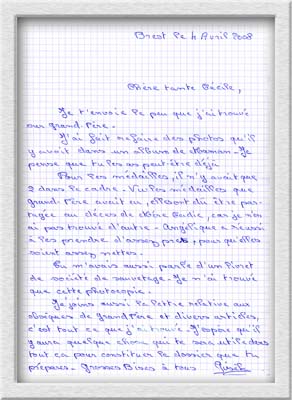 Brest le 4 Avril 2008
Chère tante Cécile,
Je t'envoie le peu que j'ai trouvé
sur grand.Père.
J'ai fait refaire des photos qu'il
y avait dans un album de Maman. Je
pense que tu les as peut-être déjà
Pour les médailles, il n'y avait que
2 dans le cadre. Vu les médailles que
Grand Père avait eu, elles ont dû être par-
tagée au décès de Mère, car je n'en
ai pas trouvé d'autre. Angélique a réussi
à les prendre d'assez près, pour qu'elles
soient assez nettes.
Tu m'avais aussi parlé d'un livret
de société de sauvetage. Je n'ai trouvé
que cette photocopie.
Je joins aussi la lettre relative aux
obsèques de Grand Père et divers articles,
c'est tout ce que j'ai trouvé. J'espère qu'il
y aura quelque chose qui te sera utile dans
tout ça pour constituer le dossier que tu
prépares. Grosses Bises à tous